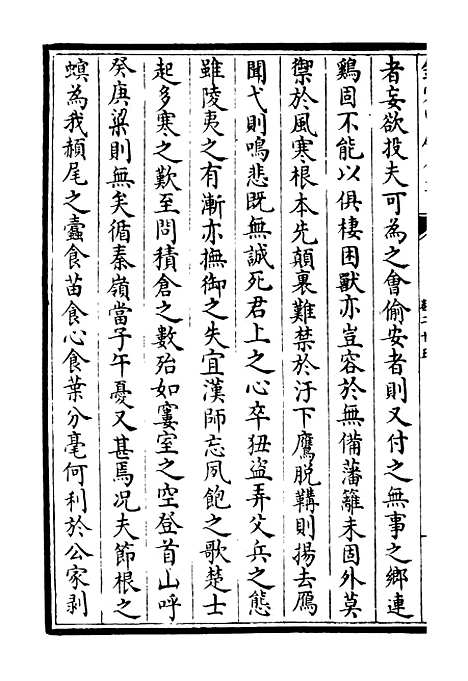 者妄欲投夫可為之會偷安者則又付之無事之鄉連
鷄固不能以俱棲困獸亦豈容於無備藩籬未固外莫
禦於風寒根本先顛裏難禁於汙下鷹脫韝則揚去鴈
聞弋則鳴悲既無誠死君上之心卒狃盜弄父兵之態
雖陵夷之有漸亦撫御之失宜漢師忘夙飽之歌楚士
起多寒之歎至問積倉之數殆如窶室之空登首山呼
癸庚粱則無矣循秦嶺當子午憂又甚焉况夫節根之
螟為我頳尾之蠧食苗食心食葉分毫何利於公家剥